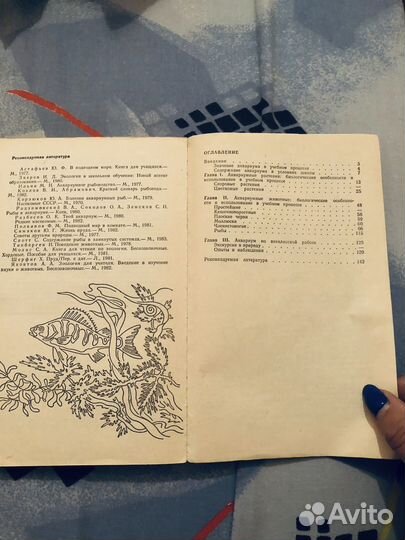 Рекомендуемая литература
Астафьев Ю. Ф. В подводном мире. Книга для учащихся.—
М., 1977.
Зверев И. Д. Экология в школьном обучении: Новый аспект
образования.— М., 1980.
Ильин М. Н. Аквариумное рыбоводство.— М., 1977.
Кочлов В. И., Абрамович. Краткий словарь рыбовода.—
М., 1982.
Корзюков Ю. А. Болезни аквариумных рыб.— М., 1979.
Насекомые СССР.— М., 1970.
В. А., Соколов О. А., Земсков С. П.
Рыбы в аквариуме.— Киев, 1980.
О. Твой аквариум.— М., 1980.
Редкие насекомые.— М., 1982.
Полканов Ф. М. Подводный мир в комнате.— М., 1981.
Ю. Г. Жизнь пруда.— М., 1982.
Советы друзьям природы.— М., 1977.
Спотт С. Содержание рыбы в замкнутых системах.— М., 1983.
Тинберген Н. Поведение животных.— М., 1978.
С. А. Книга для чтения по зоологии. Беспозвоночные.
Хордовые. Пособие для учащихся.— М., 1981.
Шерфиг Х. Пруд/Пер. с дат.— Л., 1981.
Яхонтов А. А. Зоология для учителя. Введение в изучение
науки о животных. Беспозвоночные.— М., 1982.
ОГЛАВЛЕНИЕ
Введение 3
Значение аквариума в учебном процессе 5
Содержание аквариума в условиях школы 7
Глава I. Аквариумные растения: биологические особенности и
использование в учебном процессе 13
Споровые растения
Цветковые растения 25
Глава II. Аквариумные животные: биологические особенности
и использование в учебном процессе 48
Простейшие
Кишечнополостные 56
Плоские черви 59
Моллюски 60
Членистоногие 66
Рыбы 115
Глава III. Аквариум во внеклассной работе 125
Экскурсии в природу
Опыты и наблюдения 129
Рекомендуемая литература 142
Avito